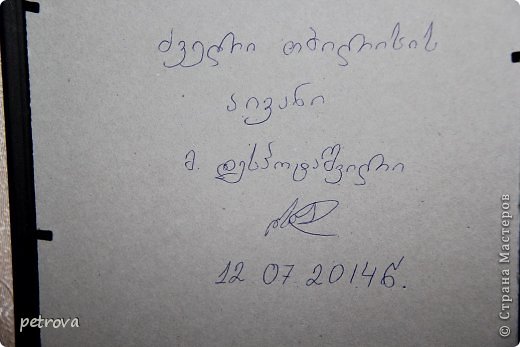 ძველი თბილისის
აივანი
მ. დესპოტაშვილი
12 07 2014წ.
petrova
© Страна Мастеров